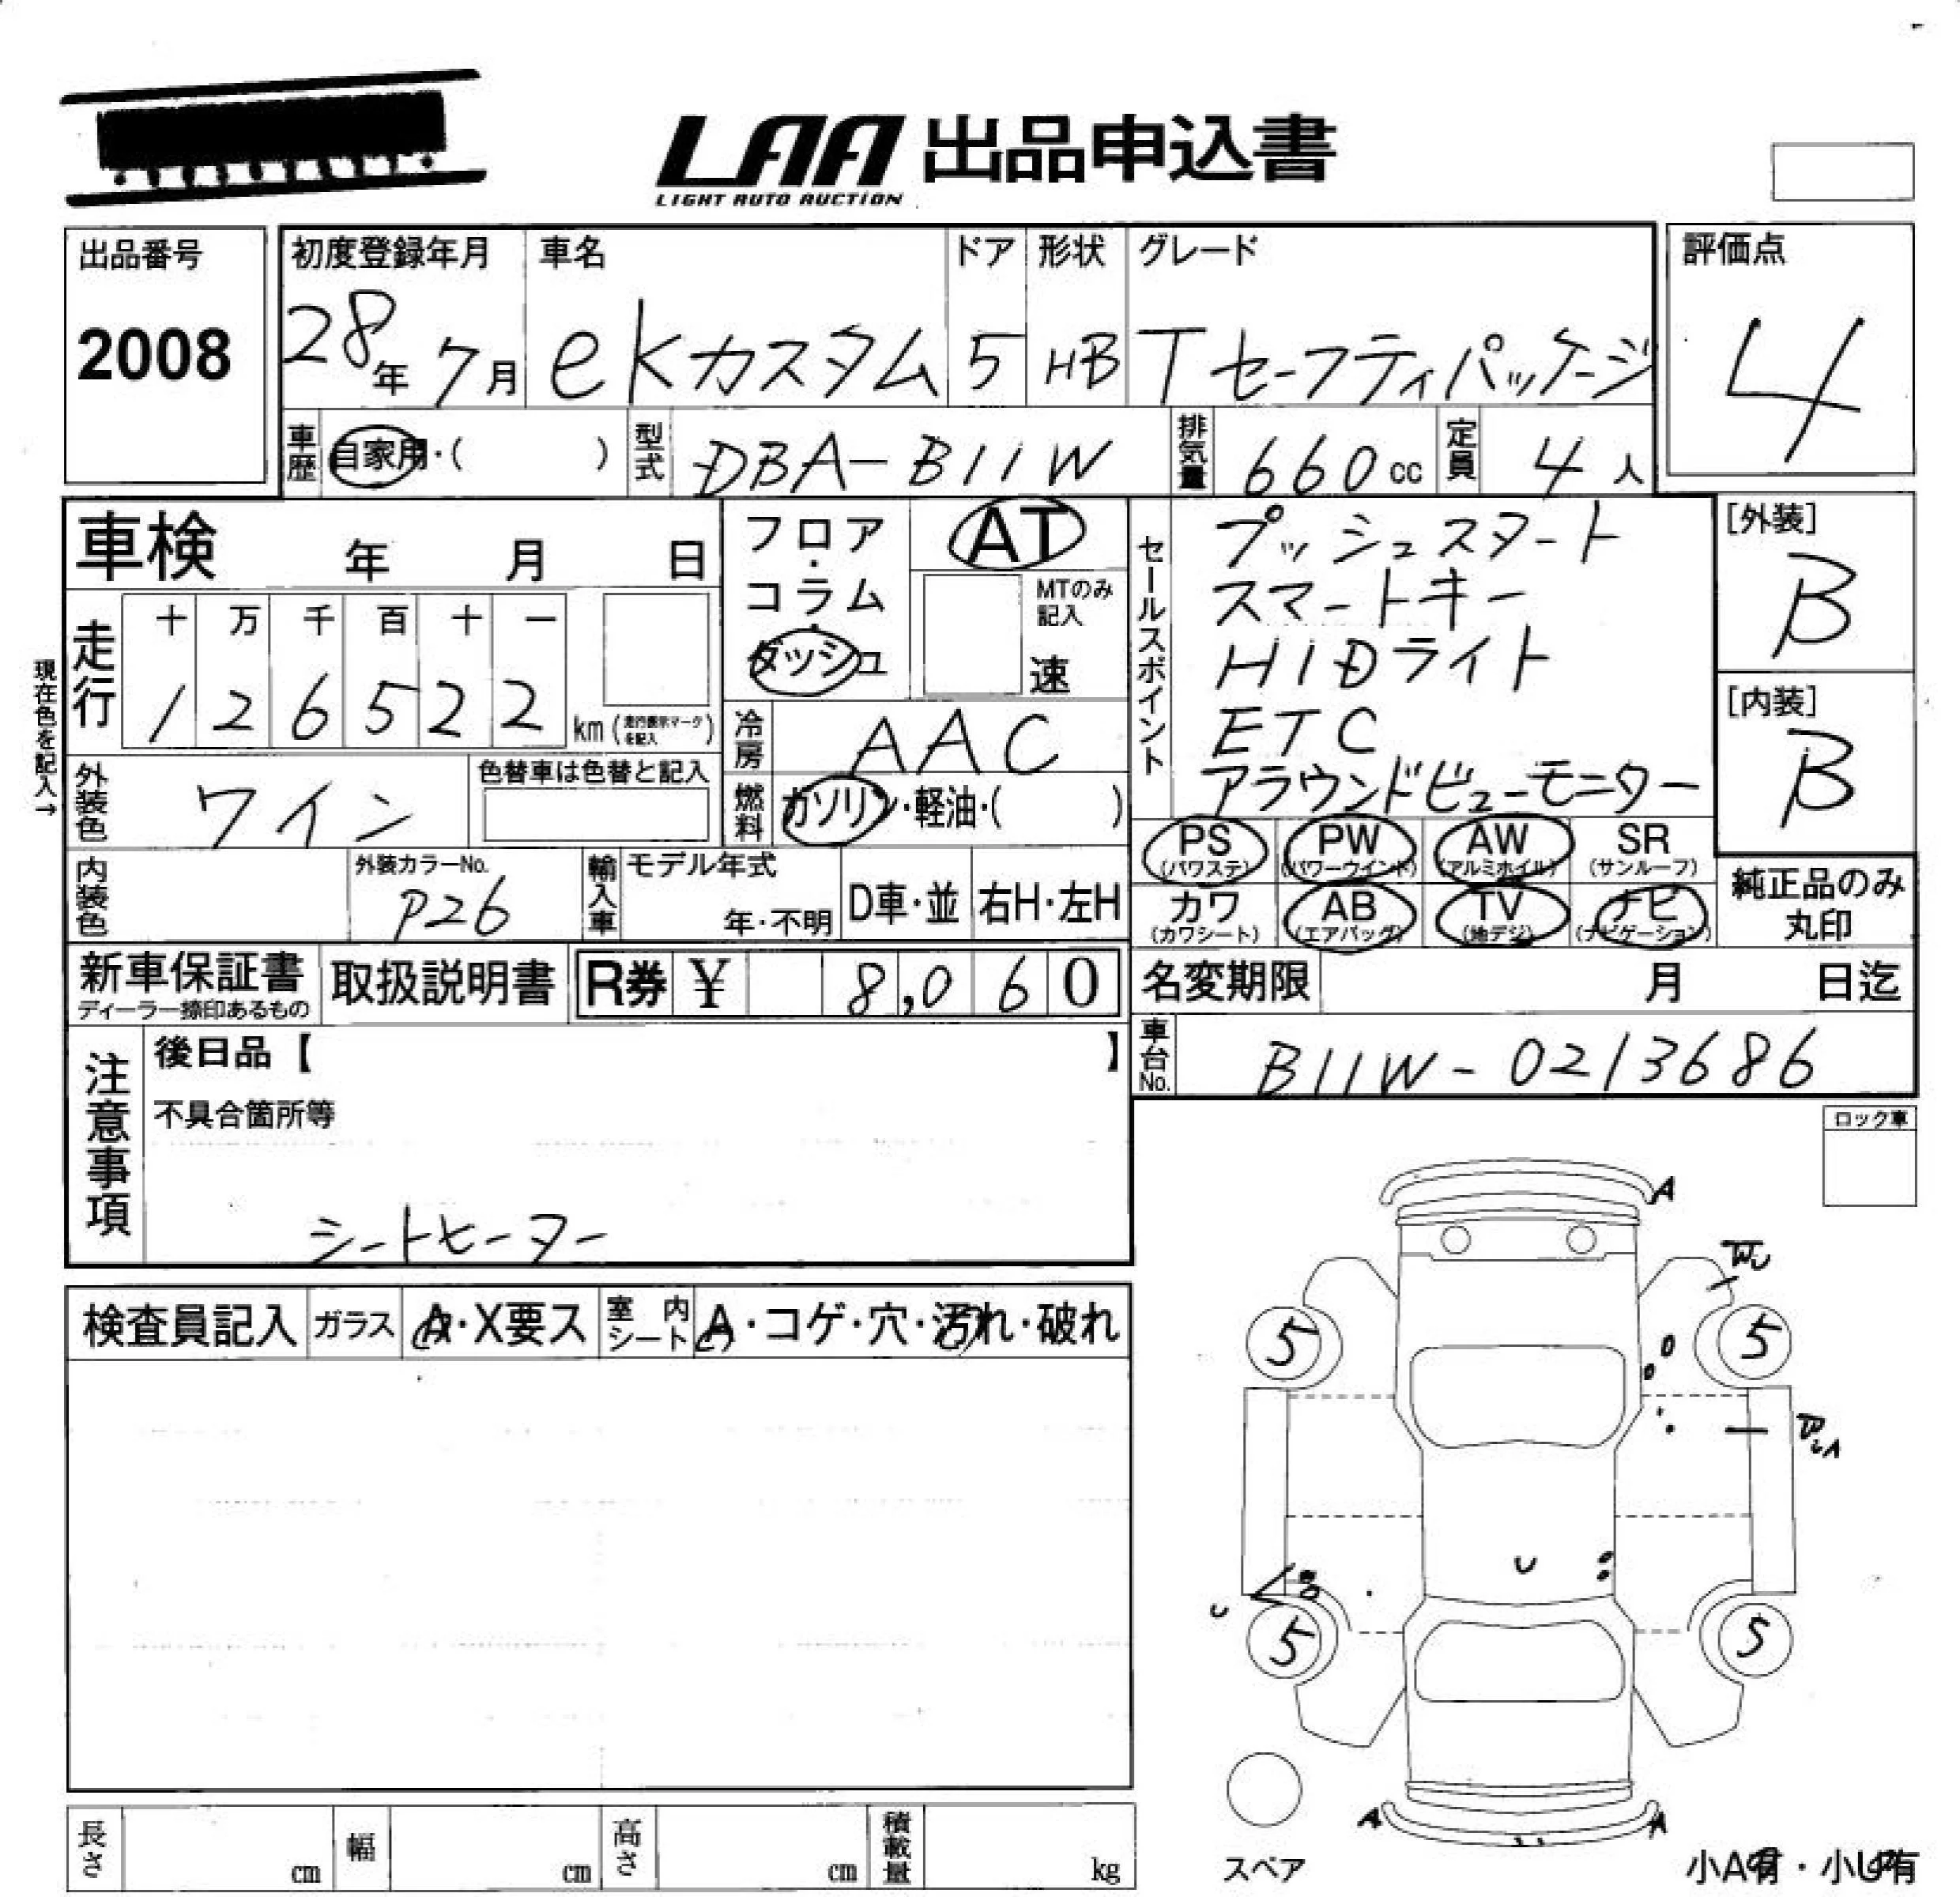 LAA 出品申込書
LIGHT AUTO AUCTION
出品番号
2008
初度登録年月
28年 7月
車名
eKカスタム
ドア
5
形状
HB
グレード
Tセーフティパッケージ
評価点
4
車歴 自家用・( )
型式 DBA-B11W
排気量 660cc
定員 4人
車検 年 月 日
フロア・コラム・ダッシュ
AT
MTのみ記入
速
セールスポイント
プッシュスタート
スマートキー
HIDライト
ETC
アラウンドビューモニター
[外装]
B
[内装]
B
現在色を記入→
走行
十 万 千 百 十 一
1 2 6 5 2 2 km (走行表示マークを記入)
冷房 AAC
外装色 ワイン
色替車は色替と記入
燃料 ガソリン・軽油・( )
PS (パワステ)
PW (パワーウインド)
AW (アルミホイル)
SR (サンルーフ)
カワ (カワシート)
AB (エアバッグ)
TV (地デジ)
ナビ (ナビゲーション)
純正品のみ丸印
内装色
外装カラーNo.
P26
輸入車
モデル年式
年・不明
D車・並
右H・左H
新車保証書
ディーラー捺印あるもの
取扱説明書
R券 ¥ 8,060
名変期限 月 日迄
車台No. B11W-0213686
注意事項
後日品【 】
不具合箇所等
シートヒーター
ロック車
検査員記入
ガラス A・X要ス
室内シート A・コゲ・穴・汚れ・破れ
A
5 5
U
U
5 5
A A
スペア
小A有・小U有
長さ cm
幅 cm
高さ cm
積載量 kg